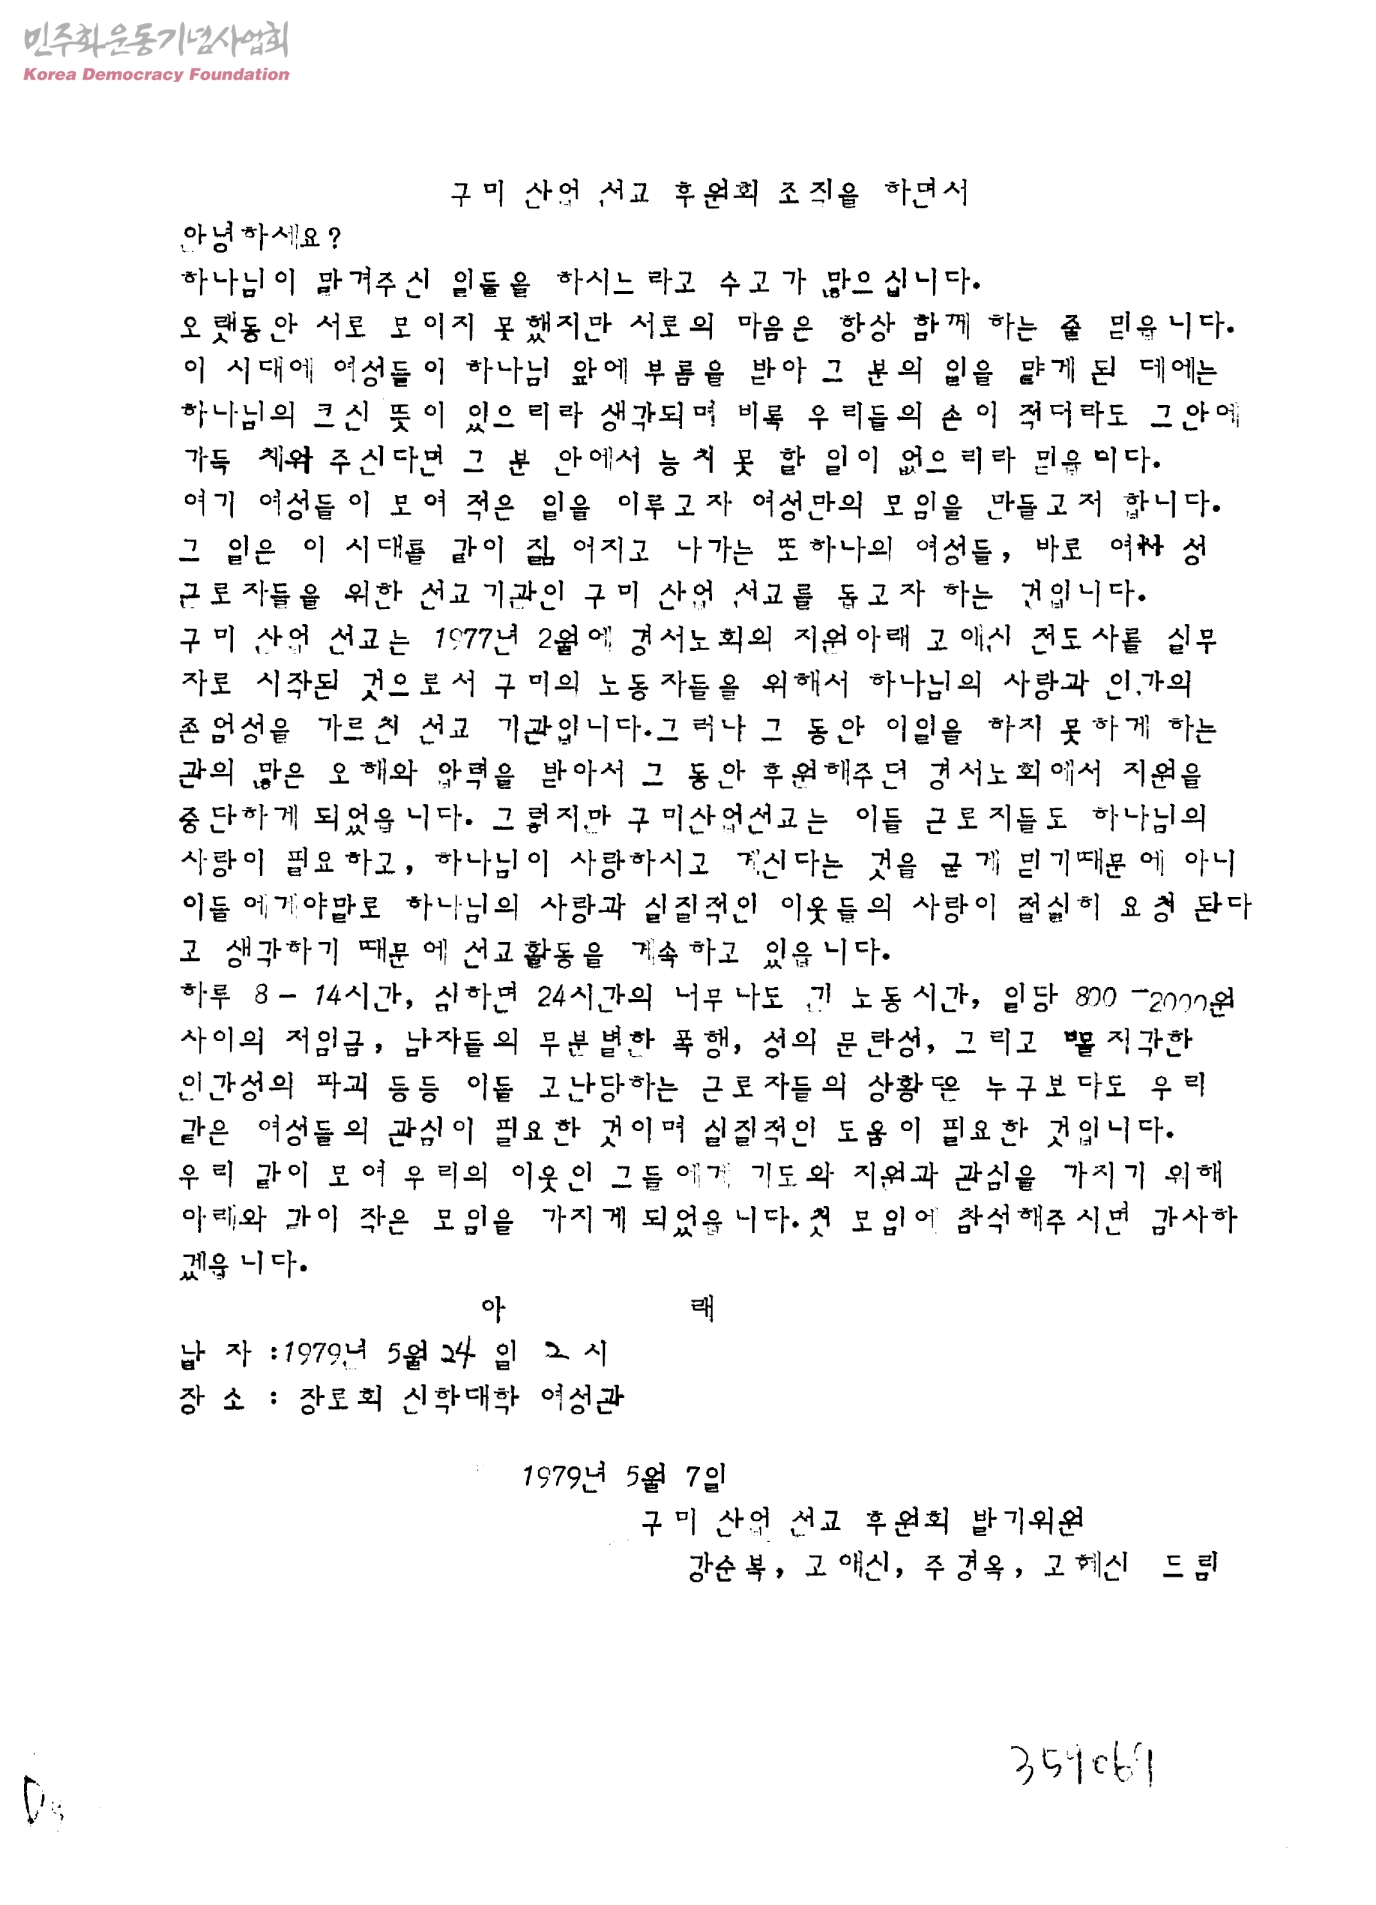 민주화운동기념사업회
Korea Democracy Foundation
구미 산업 선교 후원회 조직을 하면서
안녕하세요?
하나님이 맡겨주신 일들을 하시느라고 수고가 많으십니다.
오랫동안 서로 모이지 못했지만 서로의 마음은 항상 함께 하는 줄 믿읍니다.
이 시대에 여성들이 하나님 앞에 부름을 받아 그 분의 일을 맡게 된 데에는
하나님의 크신 뜻이 있으리라 생각되며 비록 우리들의 손이 적더라도 그안에
가득 채워 주신다면 그 분 안에서 능치 못 할 일이 없으리라 믿읍니다.
여기 여성들이 모여 적은 일을 이루고자 여성만의 모임을 만들고저 합니다.
그 일은 이 시대를 같이 짊어지고 나가는 또하나의 여성들, 바로 여 성
근로자들을 위한 선교기관인 구미 산업 선교를 돕고자 하는 것입니다.
구미 산업 선교는 1977년 2월에 경서노회의 지원아래 고애신 전도사를 실무
자로 시작된 것으로서 구미의 노동자들을 위해서 하나님의 사랑과 인간의
존엄성을 가르친 선교 기관입니다.그러나 그 동안 이일을 하지 못하게 하는
관의 많은 오해와 압력을 받아서 그 동안 후원해주던 경서노회에서 지원을
중단하게 되었읍니다. 그렇지만 구미산업선교는 이들 근로지들도 하나님의
사랑이 필요하고, 하나님이 사랑하시고 계신다는 것을 굳게 믿기때문에 아니
이들에게야말로 하나님의 사랑과 실질적인 이웃들의 사랑이 절실히 요청 된다
고 생각하기 때문에 선교활동을 계속하고 있읍니다.
하루 8 - 14시간, 심하면 24시간의 너무나도 긴 노동시간, 일당 800 -2000원
사이의 저임금, 남자들의 무분별한 폭행, 성의 문란성, 그리고 몰지각한
인간성의 파괴 등등 이들 고난당하는 근로자들의 상황은 누구보다도 우리
같은 여성들의 관심이 필요한 것이며 실질적인 도움이 필요한 것입니다.
우리 같이 모여 우리의 이웃인 그들에게 기도와 지원과 관심을 가지기 위해
아래와 같이 작은 모임을 가지게 되었읍니다.첫 모임에 참석해주시면 감사하
겠읍니다.
아 래
날 자 :1979년 5월 24 일 2 시
장 소 : 장로회 신학대학 여성관
1979년 5월 7일
구미 산업 선교 후원회 발기위원
강순복, 고애신, 주경옥, 고혜신 드림
359069